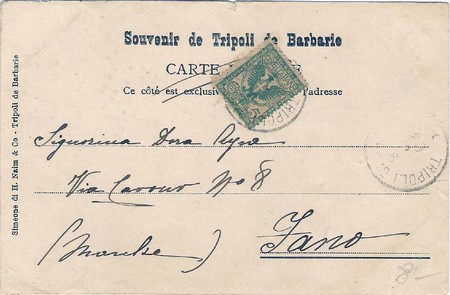 Souvenir de Tripoli de Barbarie
CARTE
Ce côté est exclusiv l'adresse
Signorina Dora
Via Cavour No 8
(Marche)
Fano
Simeone di H. Naim & Co - Tripoli de Barbarie
TRIPOLI
TRIPOLI